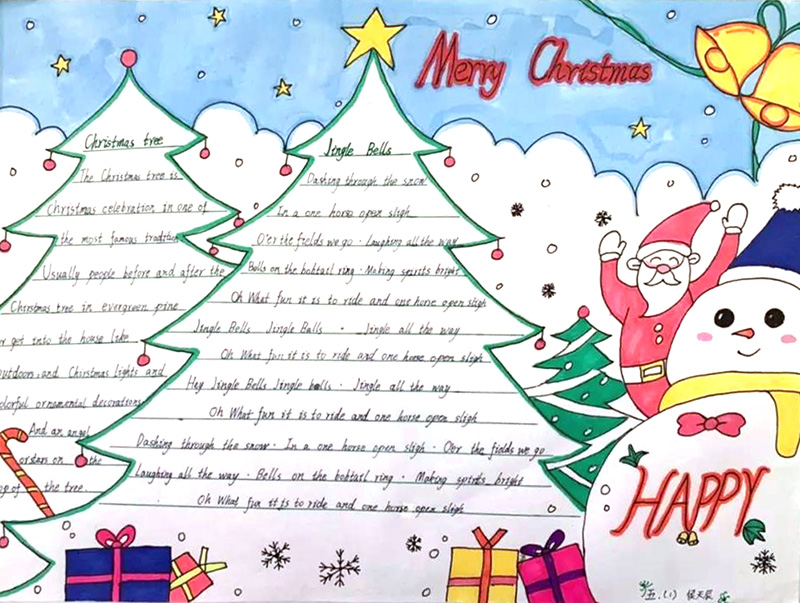 Merry Christmas
Christmas tree
The Christmas tree is
Christmas celebration in one of
the most famous tradition
Usually people before and after the
Christmas tree in evergreen pine
got into the house like
outdoors, and Christmas lights and
colorful ornamental decorations
And an angel
or stars on the
top of the tree.
Jingle Bells
Dashing through the snow
In a one horse open sligh
O'er the fields we go · Laughing all the way
Bells on the bobtail ring · Making spirits bright
Oh What fun it is to ride and one horse open sligh
Jingle Bells Jingle Balls · Jingle all the way
Oh What fun it is to ride and one horse open sligh
Hey Jingle Bells Jingle bells · Jingle all the way
Oh What fun it is to ride and one horse open sligh
Dashing through the snow · In a one horse open sligh · O'er the fields we go
Laughing all the way · Bells on the bobtail ring · Making spirits bright
Oh What fun it is to ride and one horse open sligh
HAPPY
五.(1)